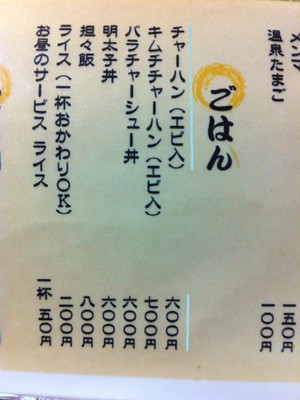 メンマ 一五〇円
温泉たまご 一〇〇円
ごはん
チャーハン（エビ入） 六〇〇円
キムチチャーハン（エビ入） 七〇〇円
バラチャーシュー丼 六〇〇円
明太子丼 六〇〇円
担々飯 八〇〇円
ライス（一杯おかわりOK） 二〇〇円
お昼のサービス ライス 一杯 五〇円